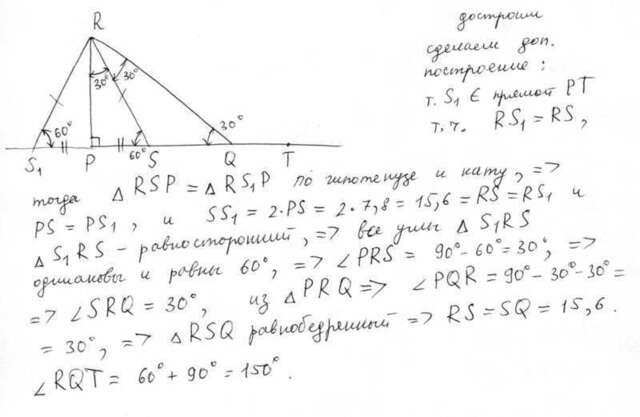 достроим
сделаем доп.
построение:
т. S₁ ∈ прямой PT
т.ч. RS₁ = RS,
R
30°
30°
60°
60°
30°
S₁ P S Q T
тогда △ RSP = △ RS₁P по гипотенузе и катету, =>
PS = PS₁, и SS₁ = 2·PS = 2·7,8 = 15,6 = RS = RS₁ и
△ S₁RS – равносторонний, => все углы △ S₁RS
одинаковы и равны 60°, => ∠PRS = 90° – 60° = 30°, =>
=> ∠SRQ = 30°, из △PRQ => ∠PQR = 90° – 30° – 30° =
= 30°, => △ RSQ равнобедренный => RS = SQ = 15,6.
∠RQT = 60° + 90° = 150°.